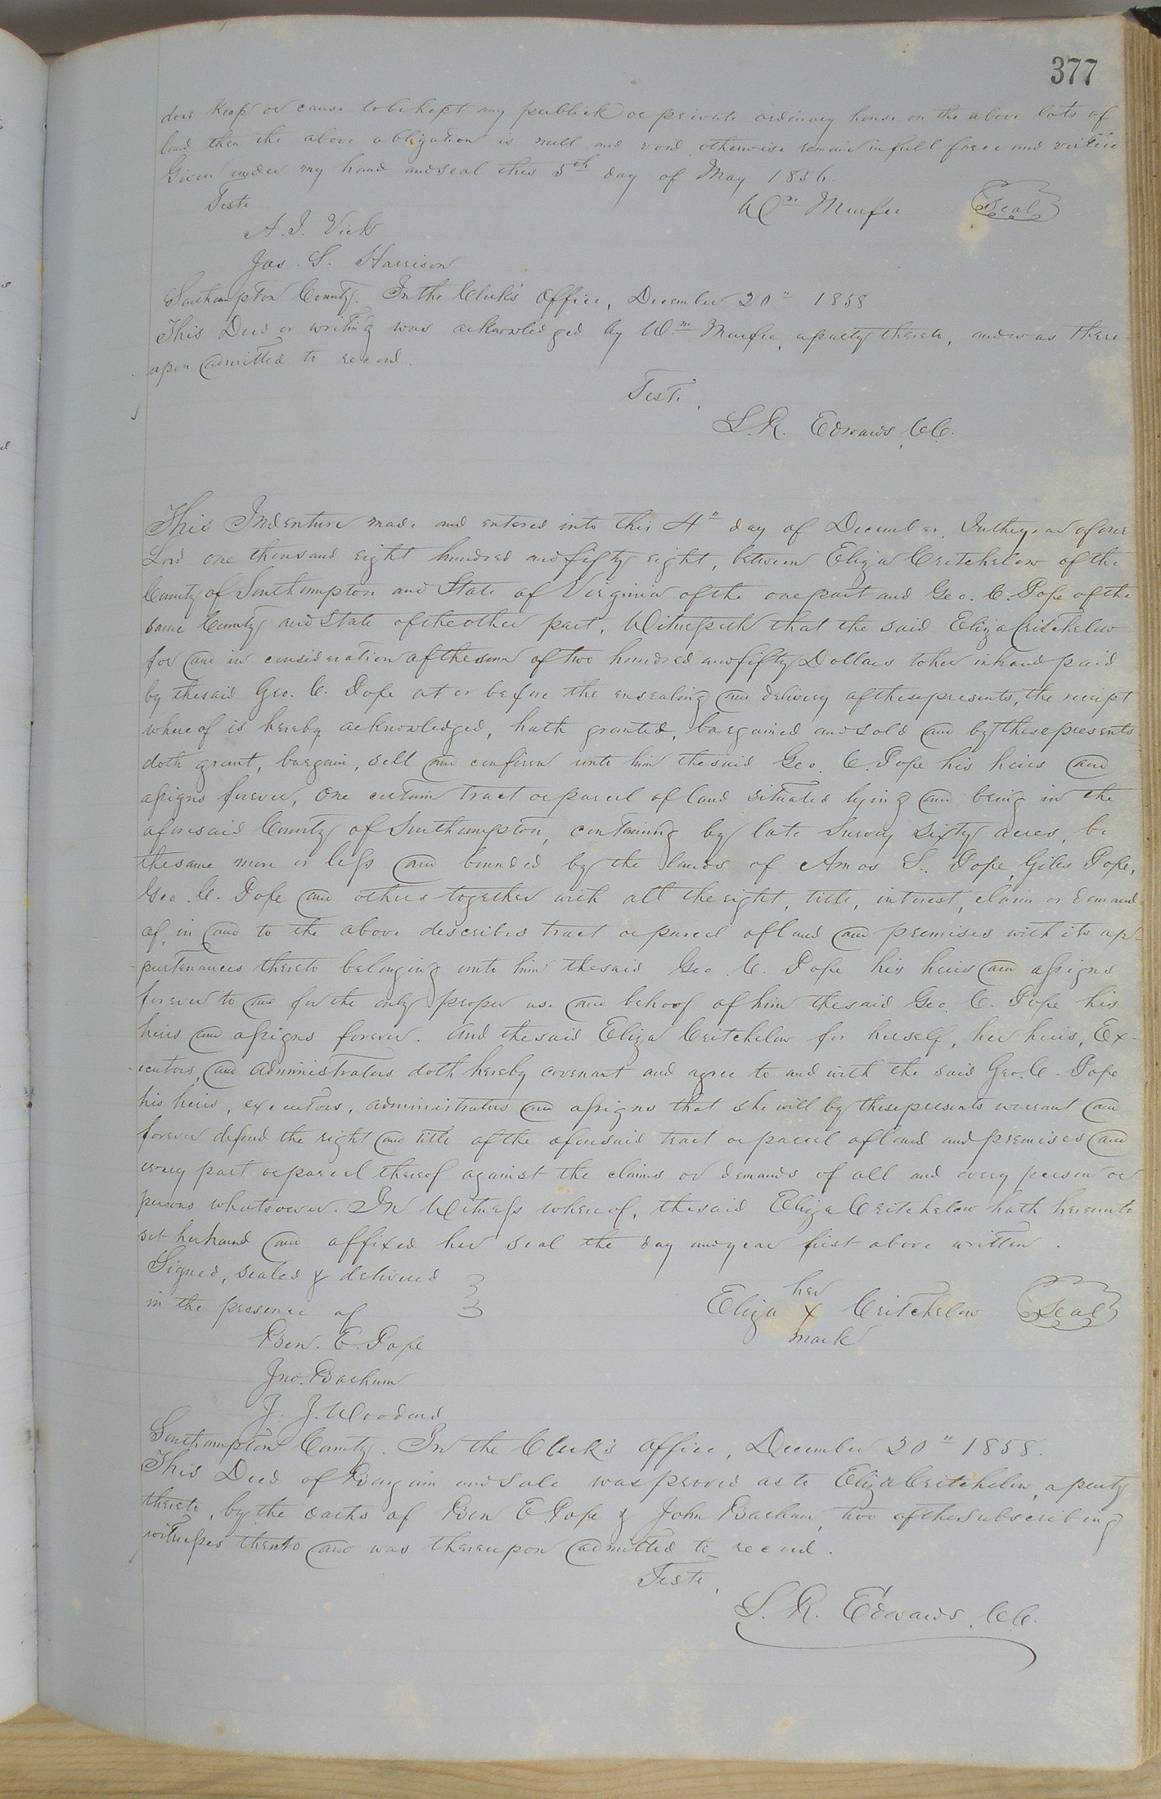 377
does keep or cause to be kept any publick or private ordinary house on the above lots of
land then the above obligation is null and void otherwise remain in full force and virtue
Given under my hand and seal this 5th day of May 1856.
Teste
Wm Murfee Seal
A. I. Vick
Jas. S. Harrison
Southampton County. In the Clerk's Office, December 20" 1858
This Deed or writing was acknowledged by Wm Murfee, a party thereto, and was there
upon admitted to record.
Teste,
L. R. Edwards, C.C.
This Indenture made and entered into this 4" day of December, In the year of our
Lord one thousand eight hundred and fifty eight, between Eliza Critchelow of the
County of Southampton and State of Virginia of the one part and Geo. C. Pope of the
same County and State of the other part, Witnesseth that the said Eliza Critchelow
for and in consideration of the sum of two hundred and fifty Dollars to her in hand paid
by the said Geo. C. Pope at or before the ensealing and delivery of these presents, the receipt
where of is hereby acknowledged, hath granted, bargained and sold and by these presents
doth grant, bargain, sell and confirm unto him the said Geo. C. Pope his heirs and
assigns forever, One certain tract or parcel of land situated lying and being in the
aforesaid County of Southampton, containing by late Survey Sixty acres, be
the same more or less and bounded by the lands of Amos S. Pope, Giles Pope,
Geo. C. Pope and others together with all the right, title, interest, claim or demand
of, in and to the above described tract or parcel of land and premises with its ap-
-purtenances thereto belonging unto him the said Geo C. Pope his heirs and assigns
forever to and for the only proper use and behoof of him the said Geo. C. Pope his
heirs and assigns forever. And the said Eliza Critchelow for herself, her heirs, Ex-
-ecutors, and Administrators doth hereby covenant and agree to and with the said Geo. C. Pope
his heirs, executors, administrators and assigns that she will by these presents warrant and
forever defend the right and title of the aforesaid tract or parcel of land and premises and
every part or parcel thereof against the claims or demands of all and every person or
persons whatsoever. In Witness whereof, the said Eliza Critchelow hath hereunto
set her hand and affixed her seal the day and year first above written.
Signed, sealed & delivered
in the presence of
her
Eliza X Critchelow Seal
mark
Ben. E. Pope
Jno. Barham
J. J. Woodard
Southampton County. In the Clerk's office, December 20" 1858.
This Deed of Bargain and Sale was proved as to Eliza Critchelow, a party
thereto, by the oaths of Ben E. Pope & John Barham, two of the subscribing
witnesses thereto and was thereupon admitted to record.
Teste,
L. R. Edwards, C.C.